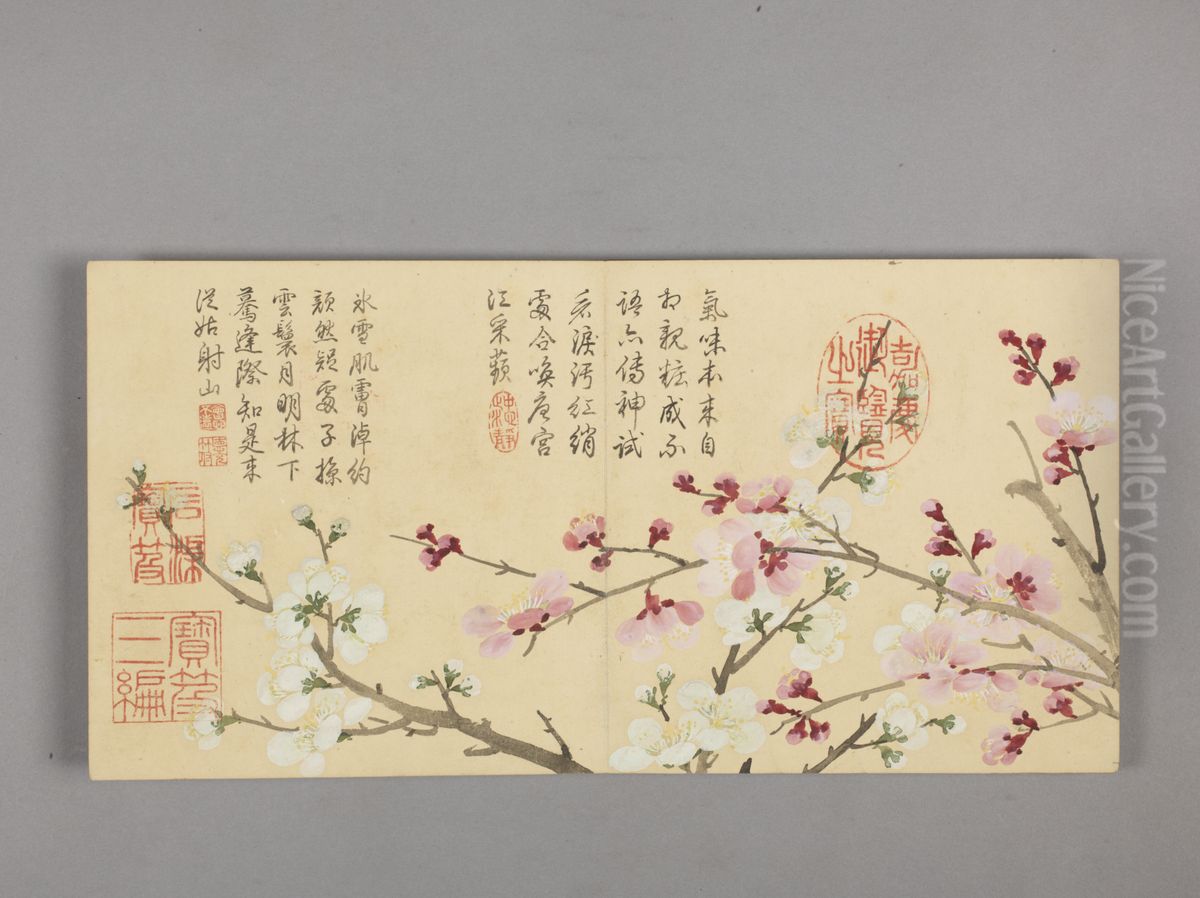 嘉慶御覽之寶
氣味本来自
相親粧成不
語亦傳神試
看淚污紅綃
處合喚唐宮
江采蘋
氷雪肌膚淖約
顏然疑處子掠
雲鬟月明林下
驀逢際知是来
從姑射山
石渠寶笈
寶笈三編
NiceArtGallery.com